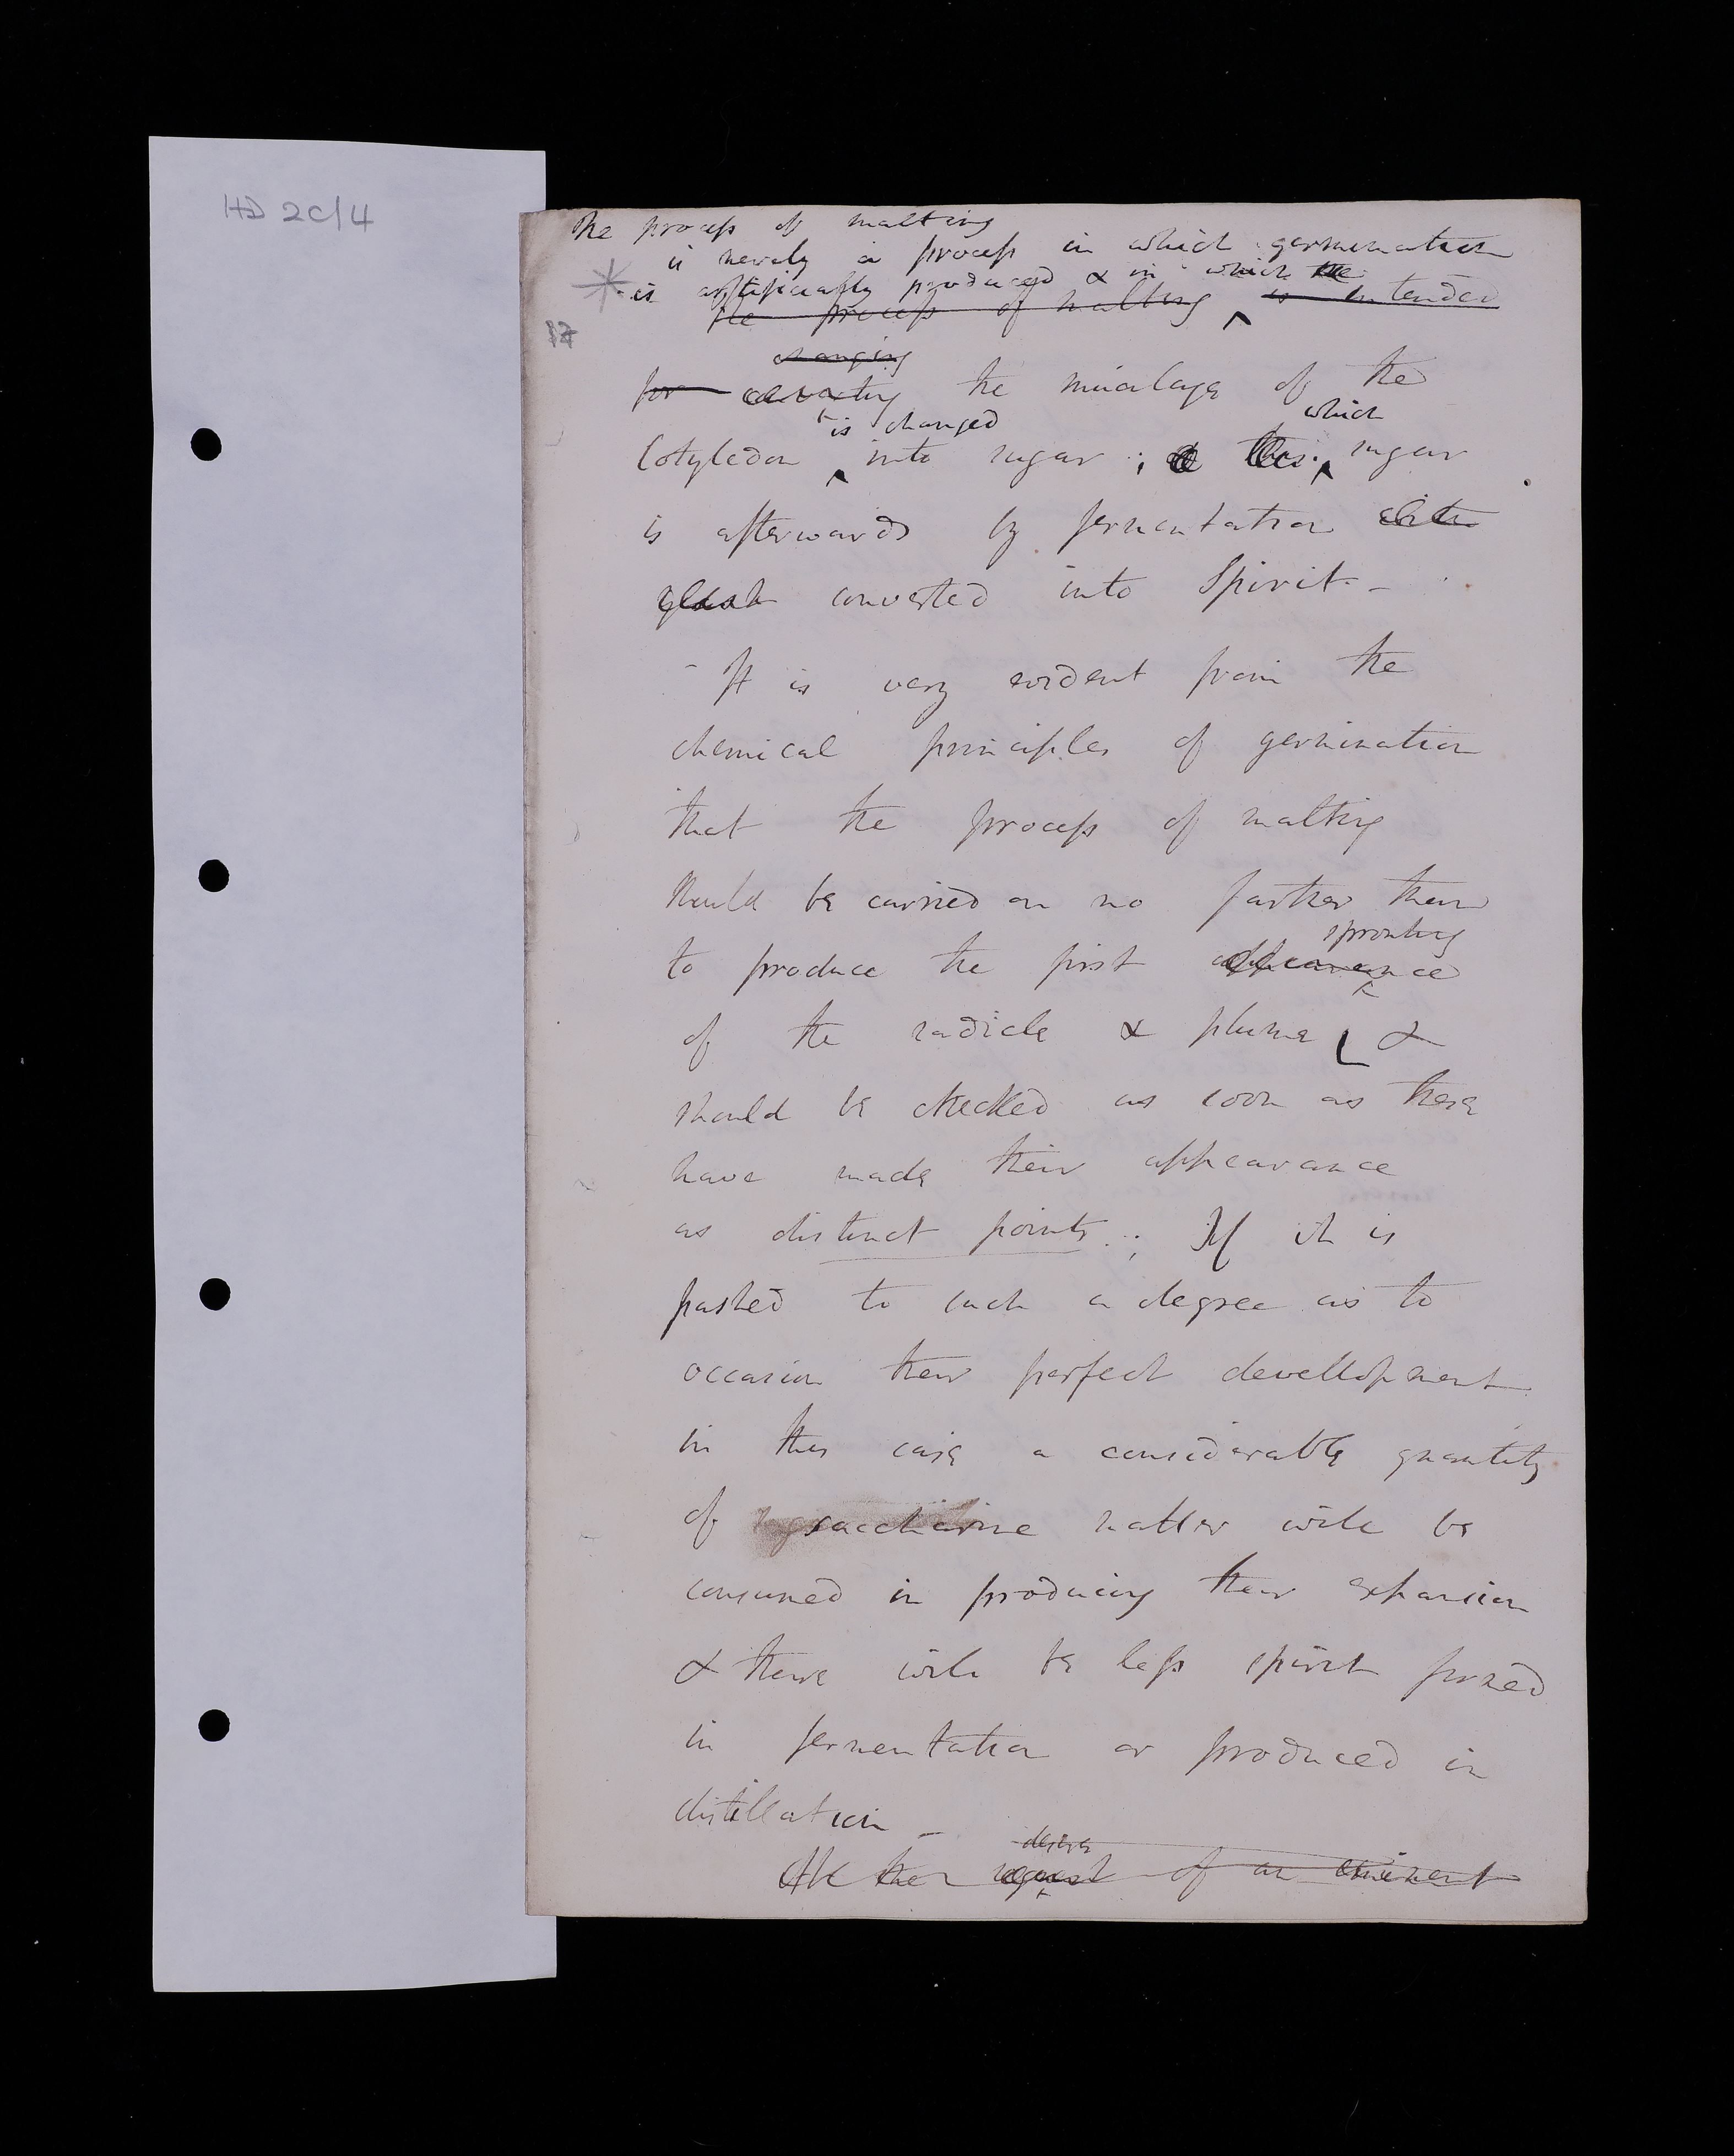 HD 2C/4
The process of malting
is merely a process in which germination
is artificially produced & in which the
the process of malting is intended
17
changing
for converting the mucilage of the
is changed which
Cotyledon into sugar ; & this sugar
is afterwards by fermentation
converted into Spirit. –
– It is very evident from the
chemical principles of germination
that the process of malting
should be carried on no farther than
sprouting
to produce the first appearance
of the radicle & plume &
should be checked as soon as these
have made their appearance
as distinct points. ; If it is
pushed to such a degree as to
occasion their perfect devellopment
in this case a considerable quantity
of saccharine matter will be
consumed in producing their expansion
& there will be less spirit formed
in fermentation or produced in
distillation –
desire
At the request of an eminent